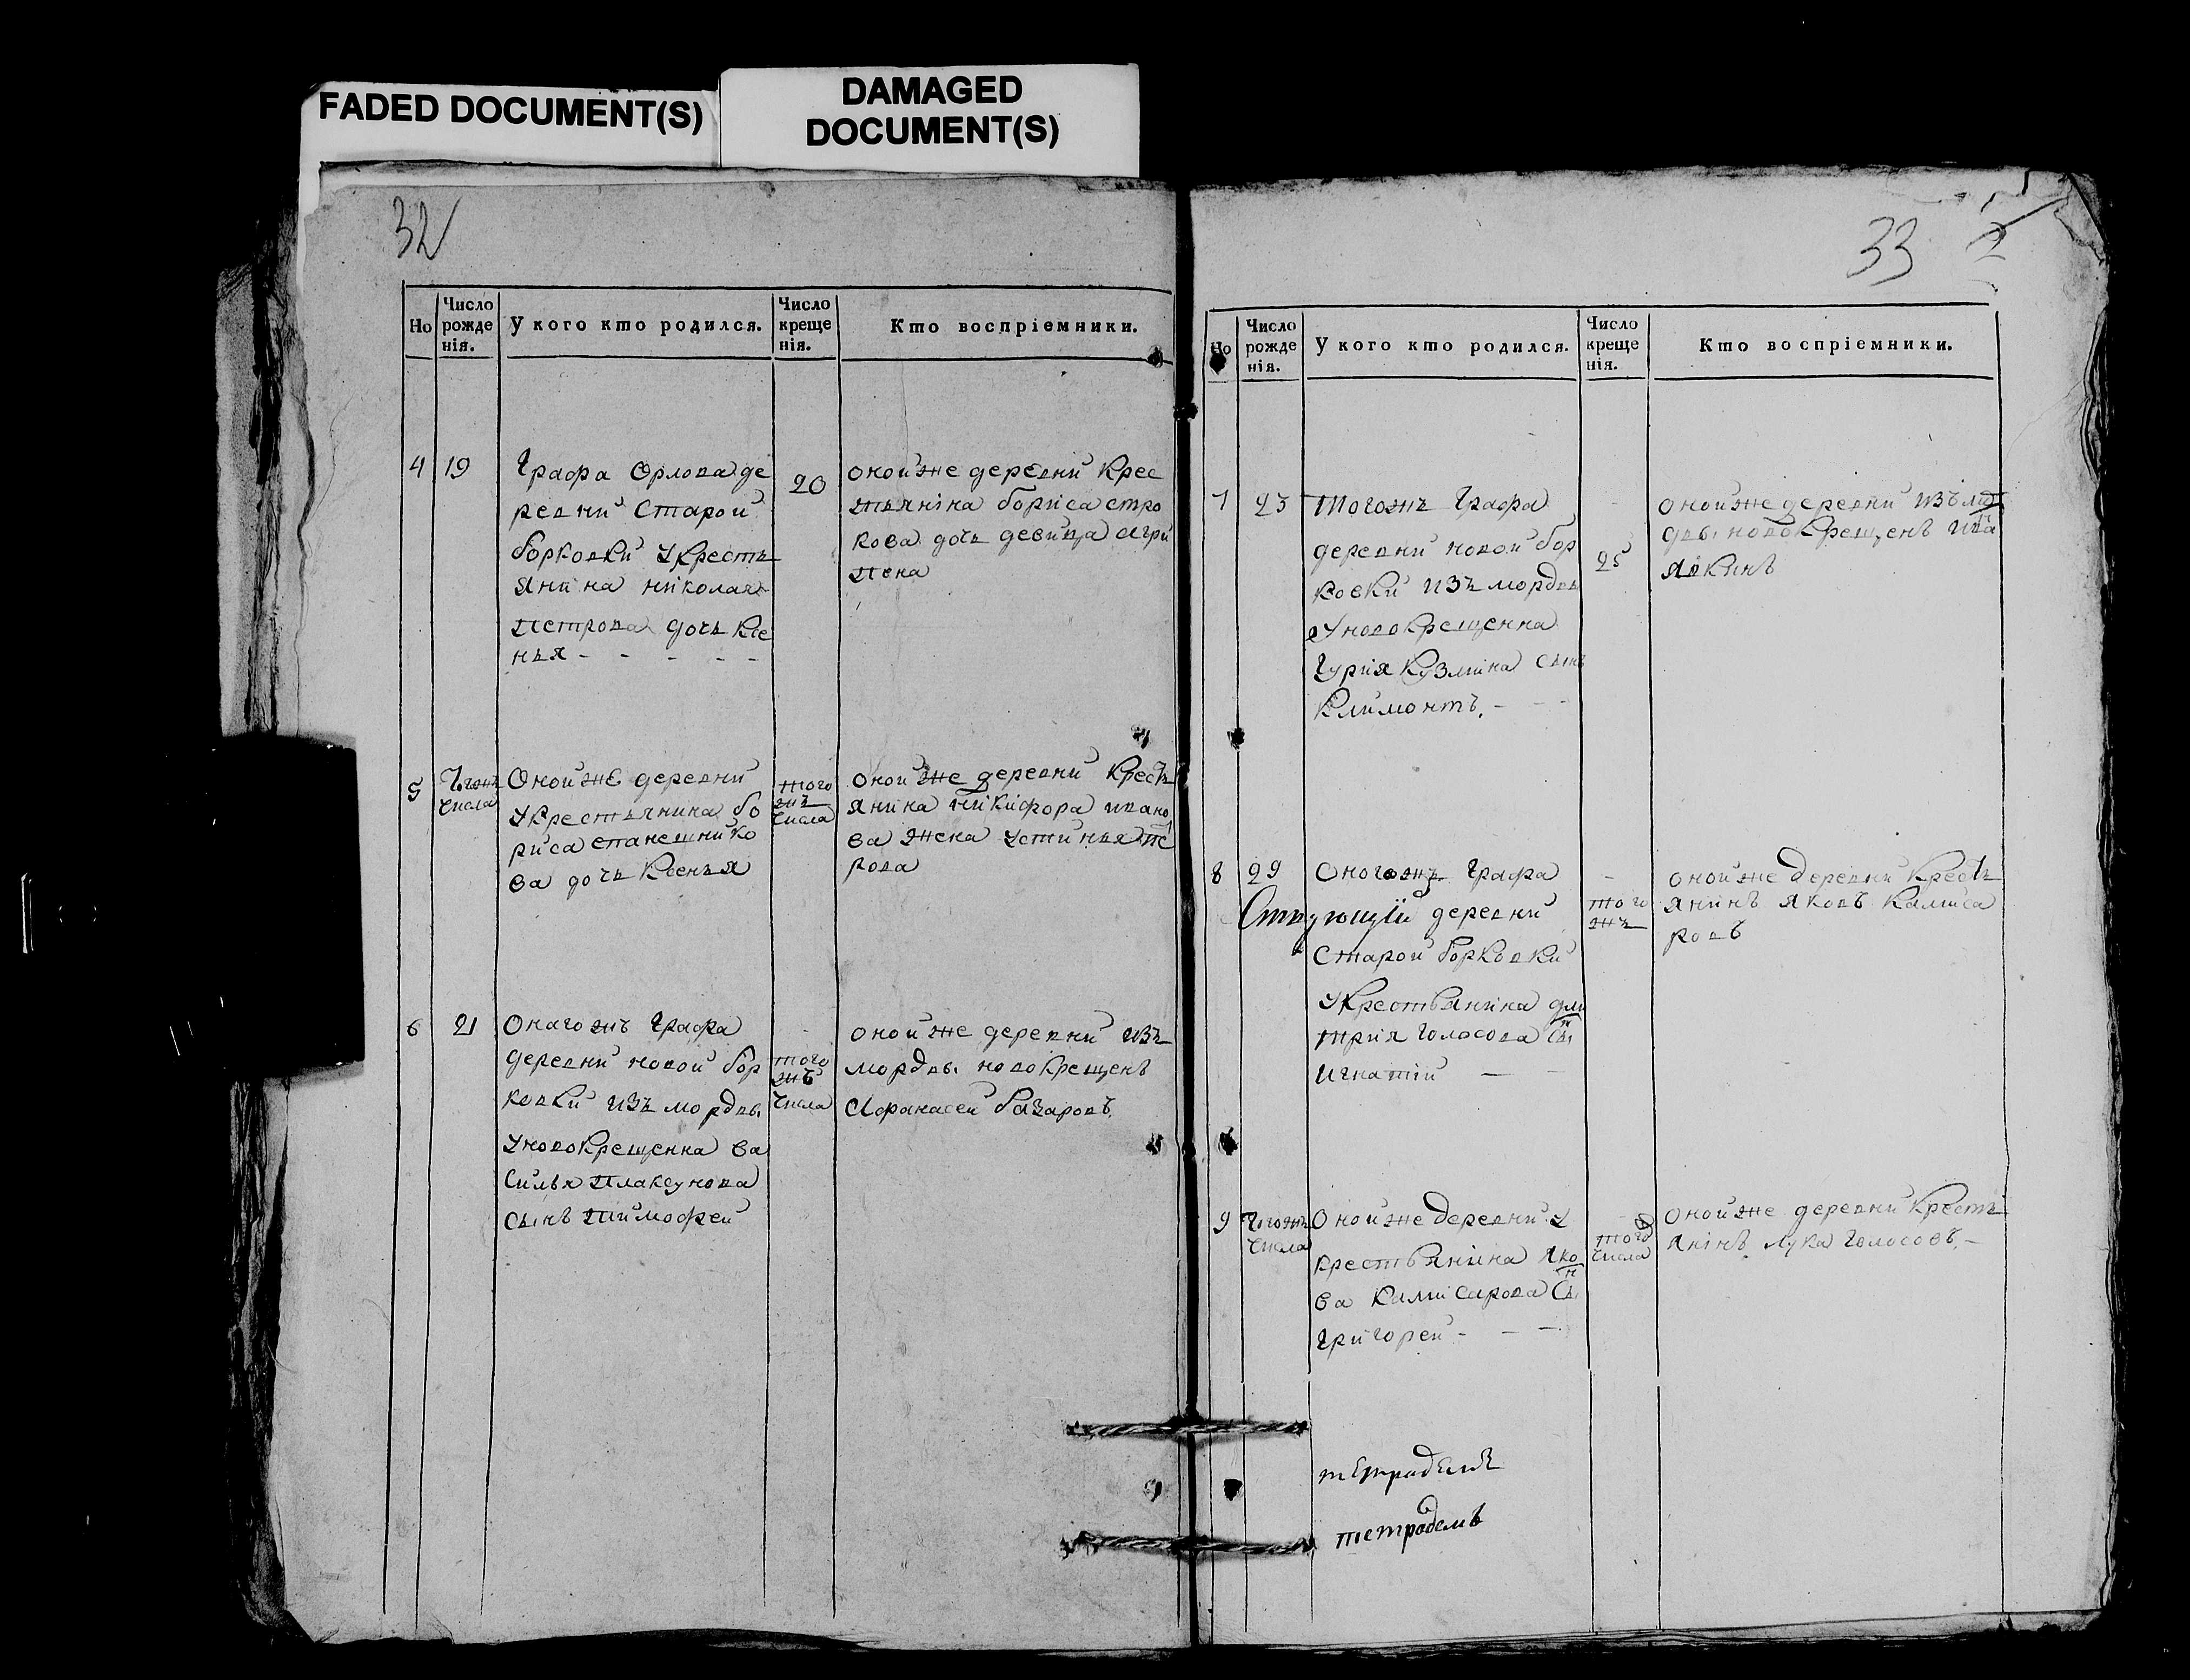 FADED DOCUMENT(S)
DAMAGED
DOCUMENT(S)
32
Но
Число
рожде
нія.
У кого кто родился.
Число
креще
нія.
Кто воспріемники.
4
19
Графа Орлова де
ревни Старой
борковки Укресть
янина николая
петрова дочь Ксе
нья - - - - -
20
оной же деревни Крес
тьянина бориса стро
кова дочь девица Агри
пена
5
Тогожъ
числа
Оной же деревни
Укрестьянина бо
риса
ва дочь Ксенья
того
жъ
числа
оной же деревни Кресть
янина никифора ивано
ва жена устинья пе
рова
6
21
Онагожъ Графа
деревни новой бор
ковки изъ мордвы
Уновокрещенна ва
силья плаксунова
сынъ тимофей
того
жъ
числа
оной же деревни изъ
мордвы новокрещенъ
Афанасей базаровъ
33
Но
Число
рожде
нія.
У кого кто родился.
Число
креще
нія.
Кто воспріемники.
7
23
Тогожъ Графа
деревни новой бор
ковки изъ мордвы
Уновокрещенна
Гурия Кузмина сынъ
Климонтъ. - - -
25
оной же деревни изъ мо
двы новокрещенъ
8
29
Оногожъ Графа
деревни
Старой борковки
Укрестьянина дми
трия Голосова сынъ
игнатій — —
того
жъ
оной же деревни Кресть
янинъ яковъ Камиса
ровъ
9
Тогожъ
числа
Оной же деревни у
крестьянина яко
ва Камисарова сынъ
Григорей - - -
того
числа
оной же деревни Кресть
янінъ лука Голосовъ. -
тетрадемъ
тетрадемъ